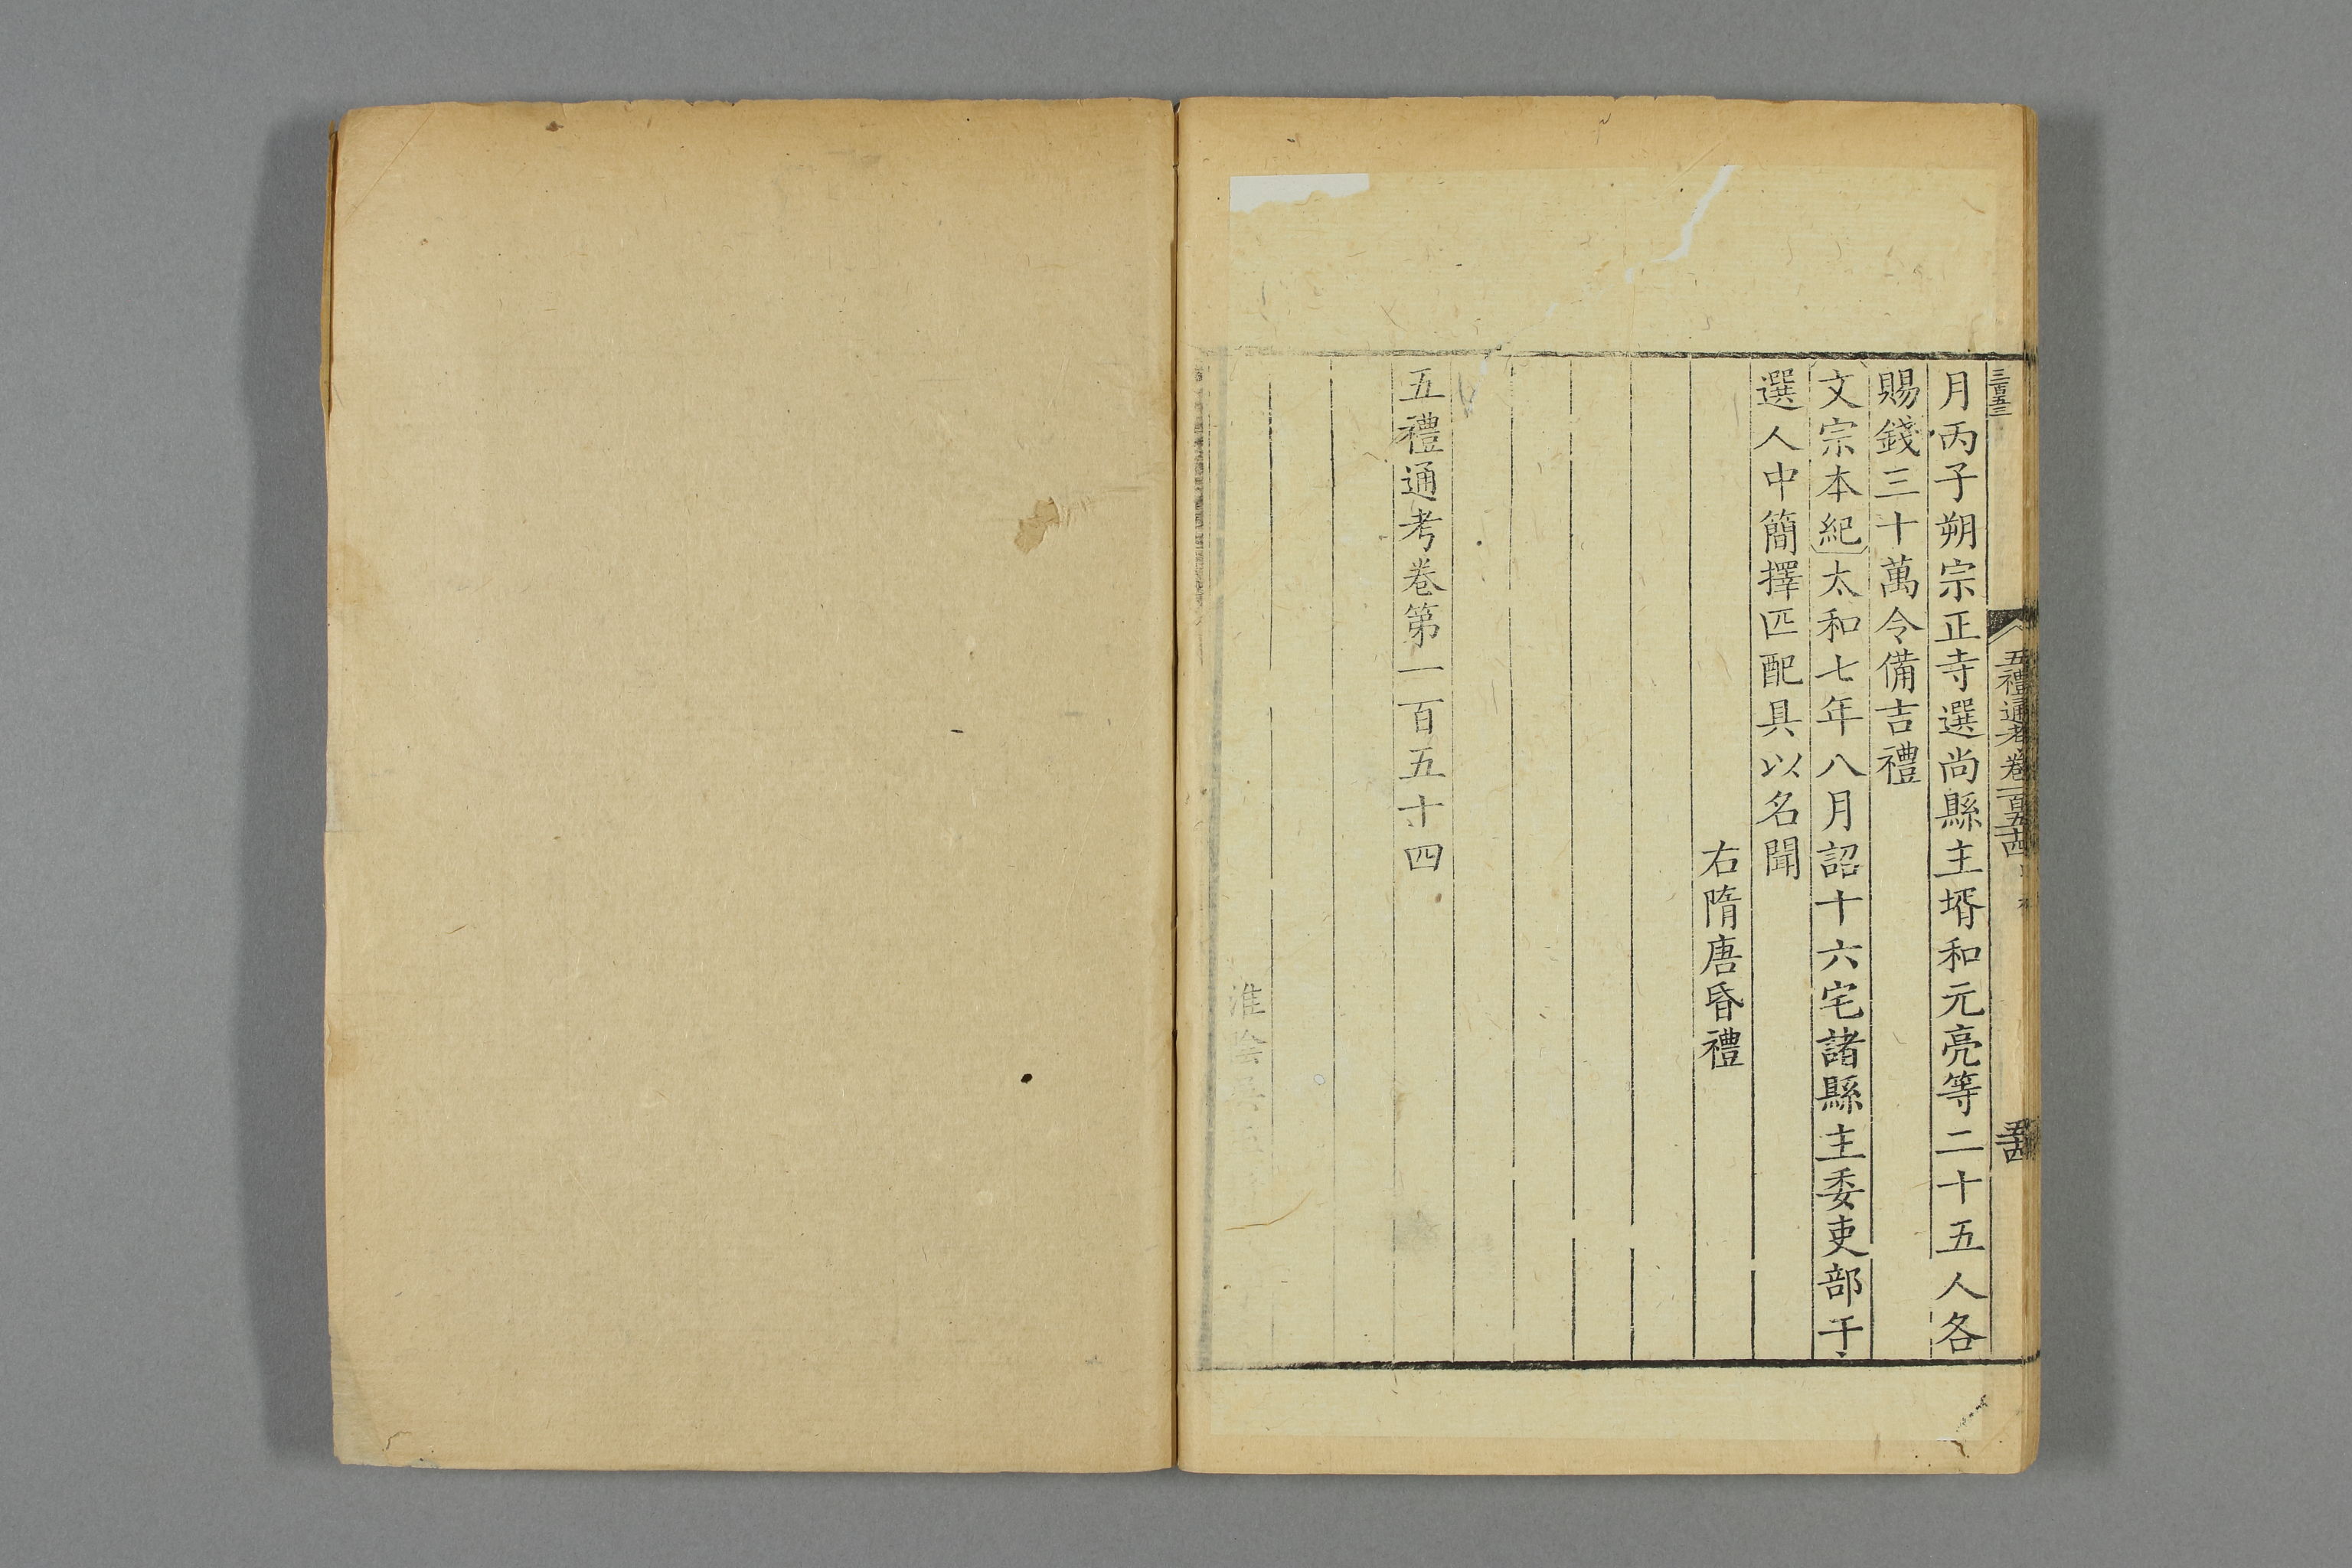 三百五三
五禮通考卷一百五十四
五十四
月丙子朔宗正寺選尚縣主壻和元亮等二十五人各
賜錢三十萬令備吉禮
文宗本紀太和七年八月詔十六宅諸縣主委吏部于
選人中簡擇匹配具以名聞
右隋唐昏禮
五禮通考卷第一百五十四
淮陰